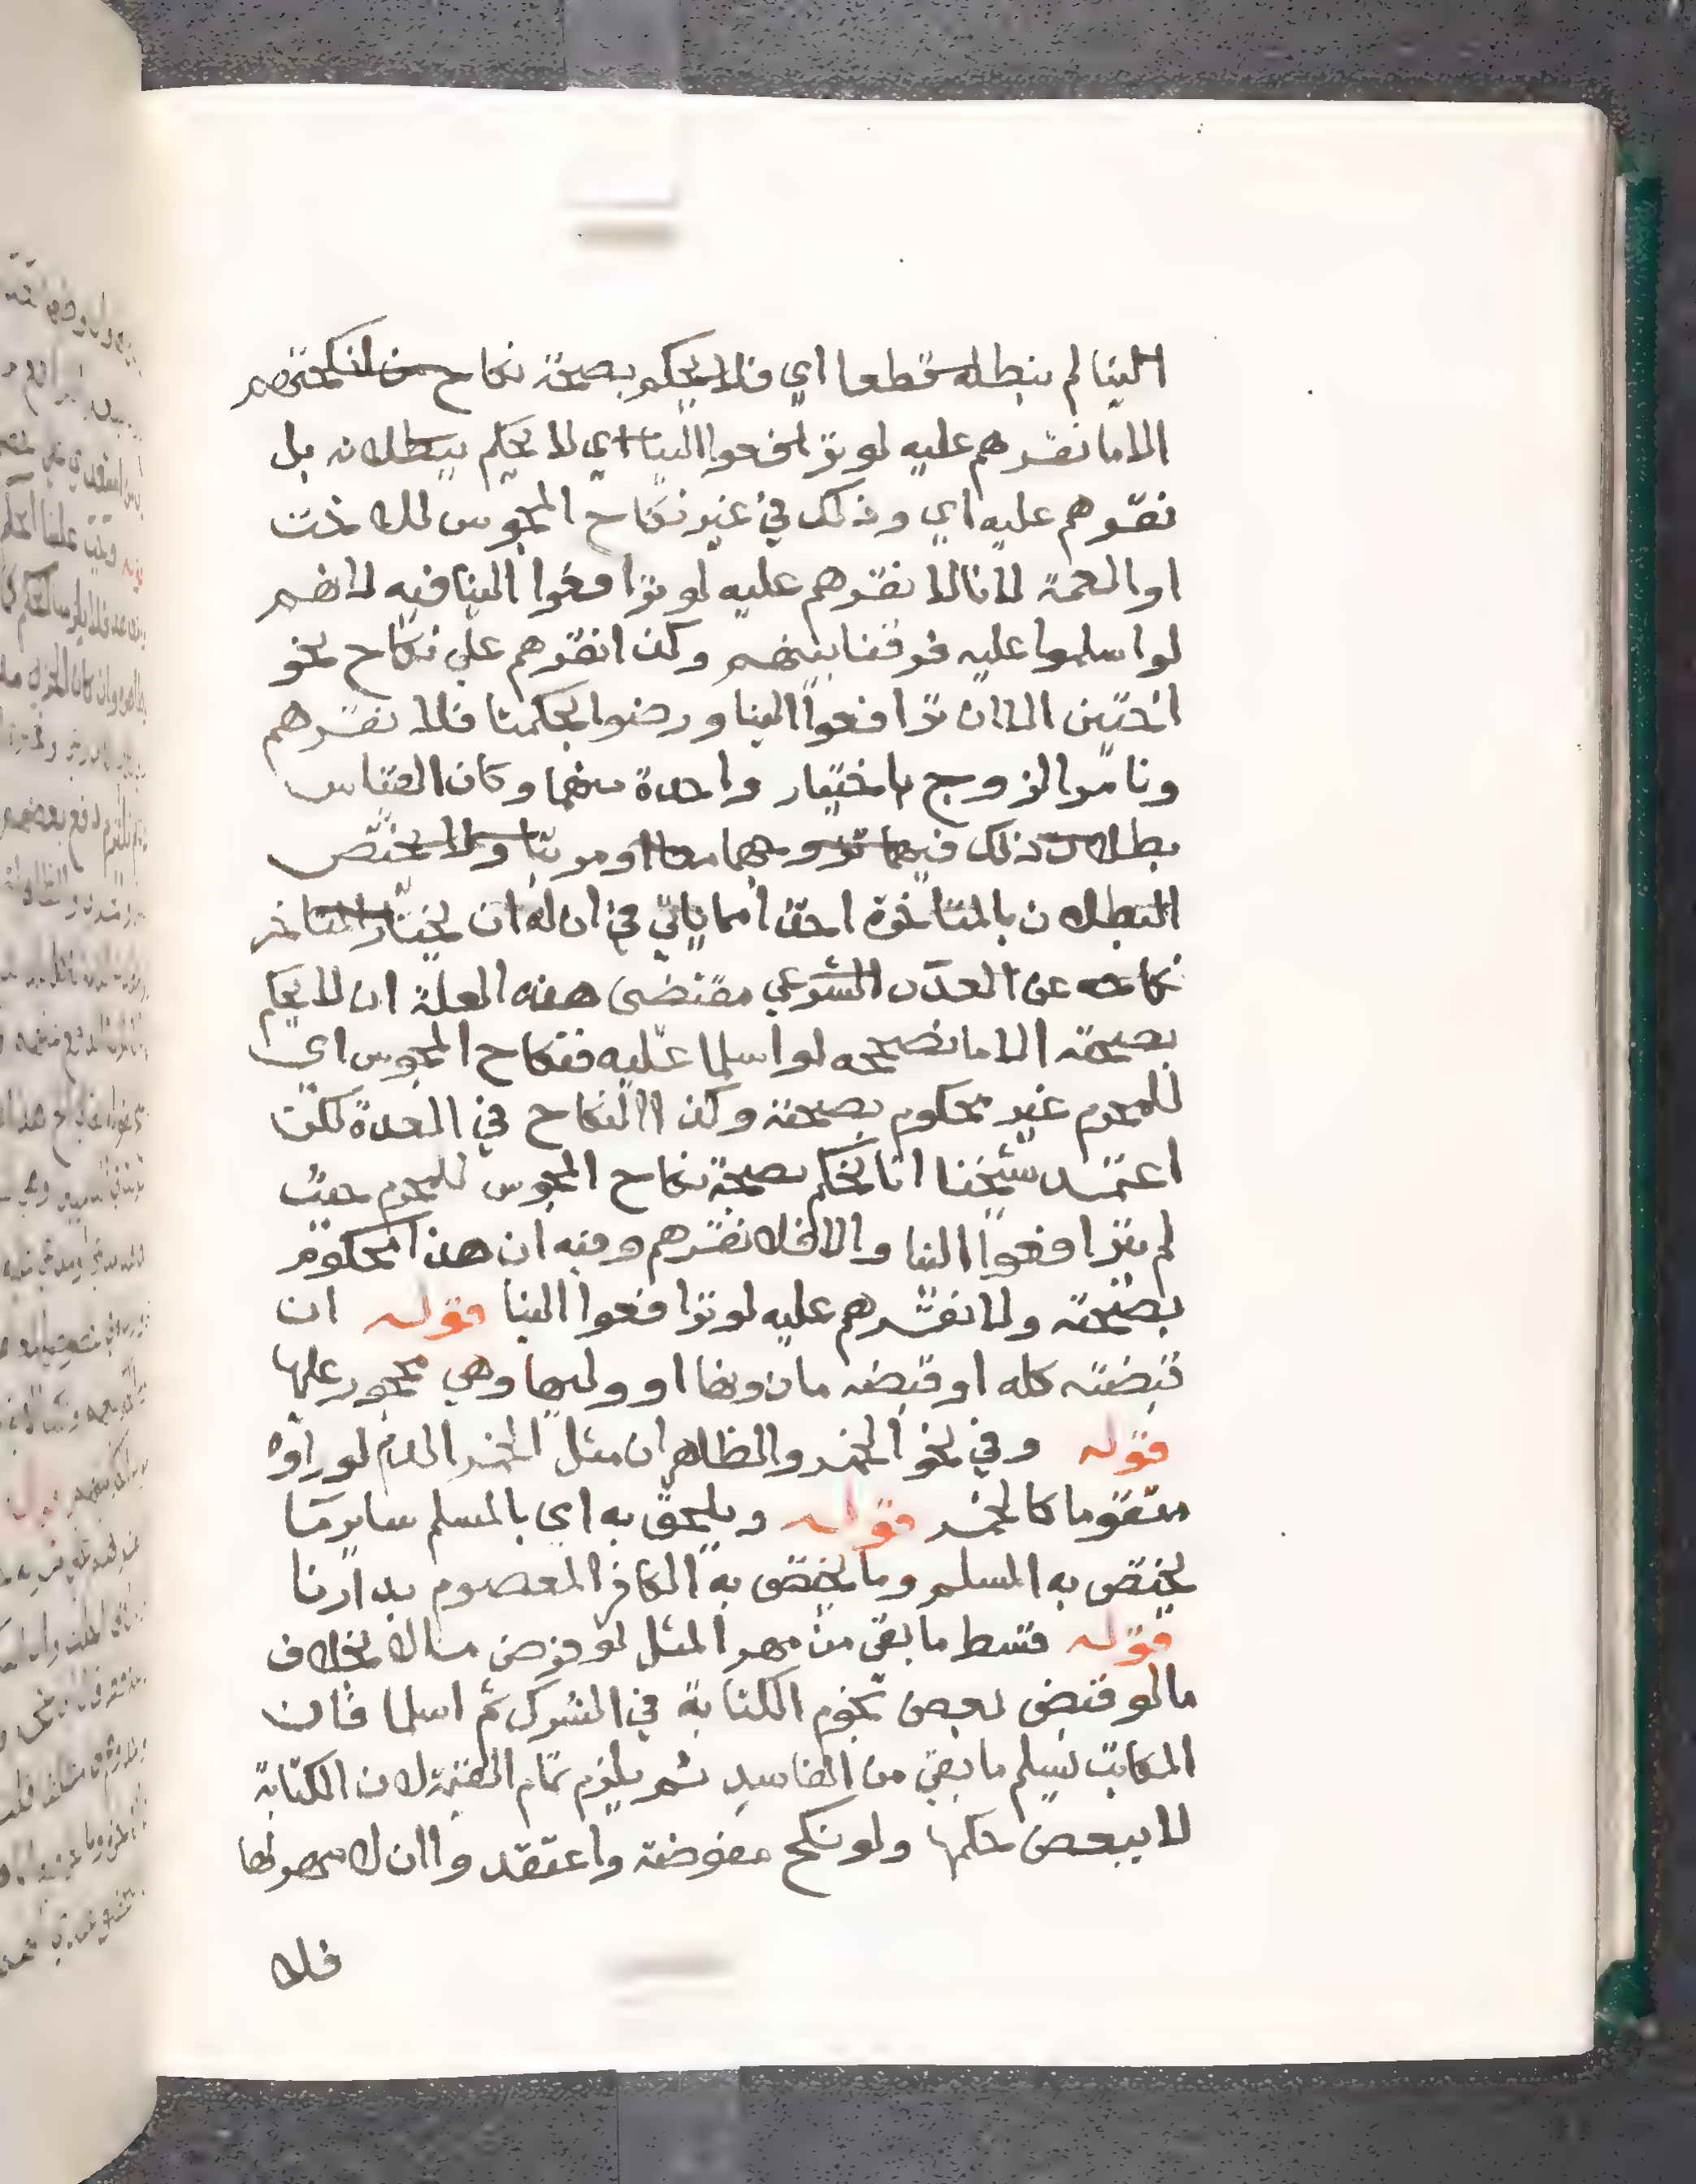 الينا لم نبطله قطعا اي فلا يحكم بصحة نكاح من انكحتهم
الا ما نقرهم عليه لو ترافعوا الينا اي لا يحكم ببطلانه بل
نقرهم عليه اي وذلك في غير نكاح المجوس للاخت
او العمة لانا لا نقرهم عليه لو ترافعوا الينا فيه لانهم
لو اسلموا عليه فرقنا بينهم وكذا نقرهم على نكاح نحو
اختين الا ان ترافعوا الينا ورضوا بحكمنا فلا نقرهم
ونامر الزوج باختيار واحدة منهما وكان القياس
بطلان ذلك فيهما تزوجهما معا او مرتبا ولا يختص
البطلان بالمتاخرة اخذا مما ياتي في ان له ان يختار المتاخر
نكاحه عن العدد الشرعي مقتضى هذه العلة ان لا يحكم
بصحته الا ما نصححه لو اسلما عليه فنكاح المجوس اي
للمحرم غير محكوم بصحته وكذا النكاح في العدة لكن
اعتمد شيخنا انا نحكم بصحة نكاح المجوس للمحرم حيث
لم يترافعوا الينا والا فلا نقرهم وفيه ان هذا محكوم
بصحته ولا نقرهم عليه لو ترافعوا الينا قوله ان
قبضته كله او قبضه ماذونها او وليها وهي محجور عليها
قوله وفي نحو الخمر والظاهر ان مثل الخمر الدم لو راوه
متقوما كالخمر قوله ويلحق به اي بالمسلم ساير ما
يختص به المسلم وما يختص به الكافر المعصوم بدارنا
قوله قسط ما بقي من مهر المثل لو فرض مسالك بخلاف
ما لو قبض بعض نجوم الكتابة في الشرك ثم اسلما فان
المكاتب يسلم ما بقي من الفاسد ثم يلزم تمام القيمة لان الكتابة
لا يبعض حكمها ولو نكح مفوضة واعتقدوا ان لا مهر لها
فلا